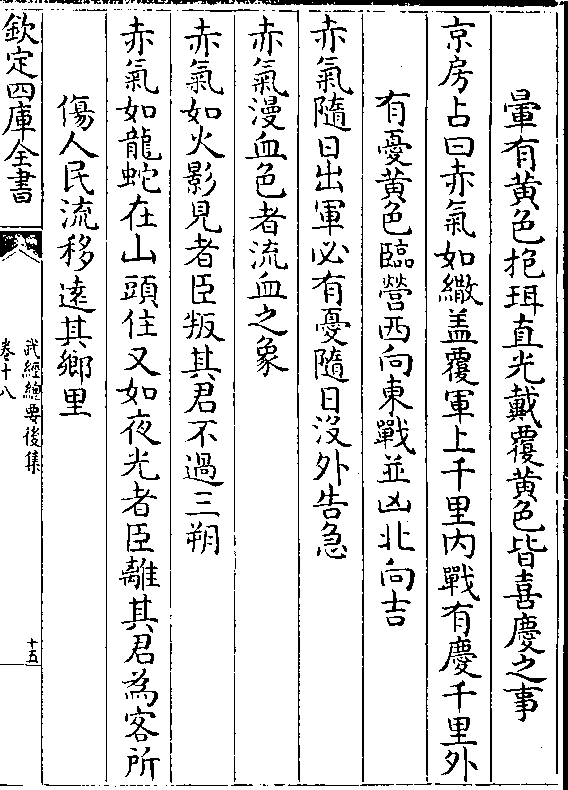 暈有黃色抱珥直光戴覆黃色皆喜慶之事
京房占曰赤氣如繖盖覆軍上千里内戰有慶千里外
有憂黃色臨營西向東戰並凶北向吉
赤氣隨日出軍必有憂隨日沒外告急
赤氣漫血色者流血之象
赤氣如火影見者臣叛其君不過三朔
赤氣如龍蛇在山頭住又如夜光者臣離其君為客所
傷人民流移逺其鄉里
欽定四庫全書
武經總要後集
卷十八
十五